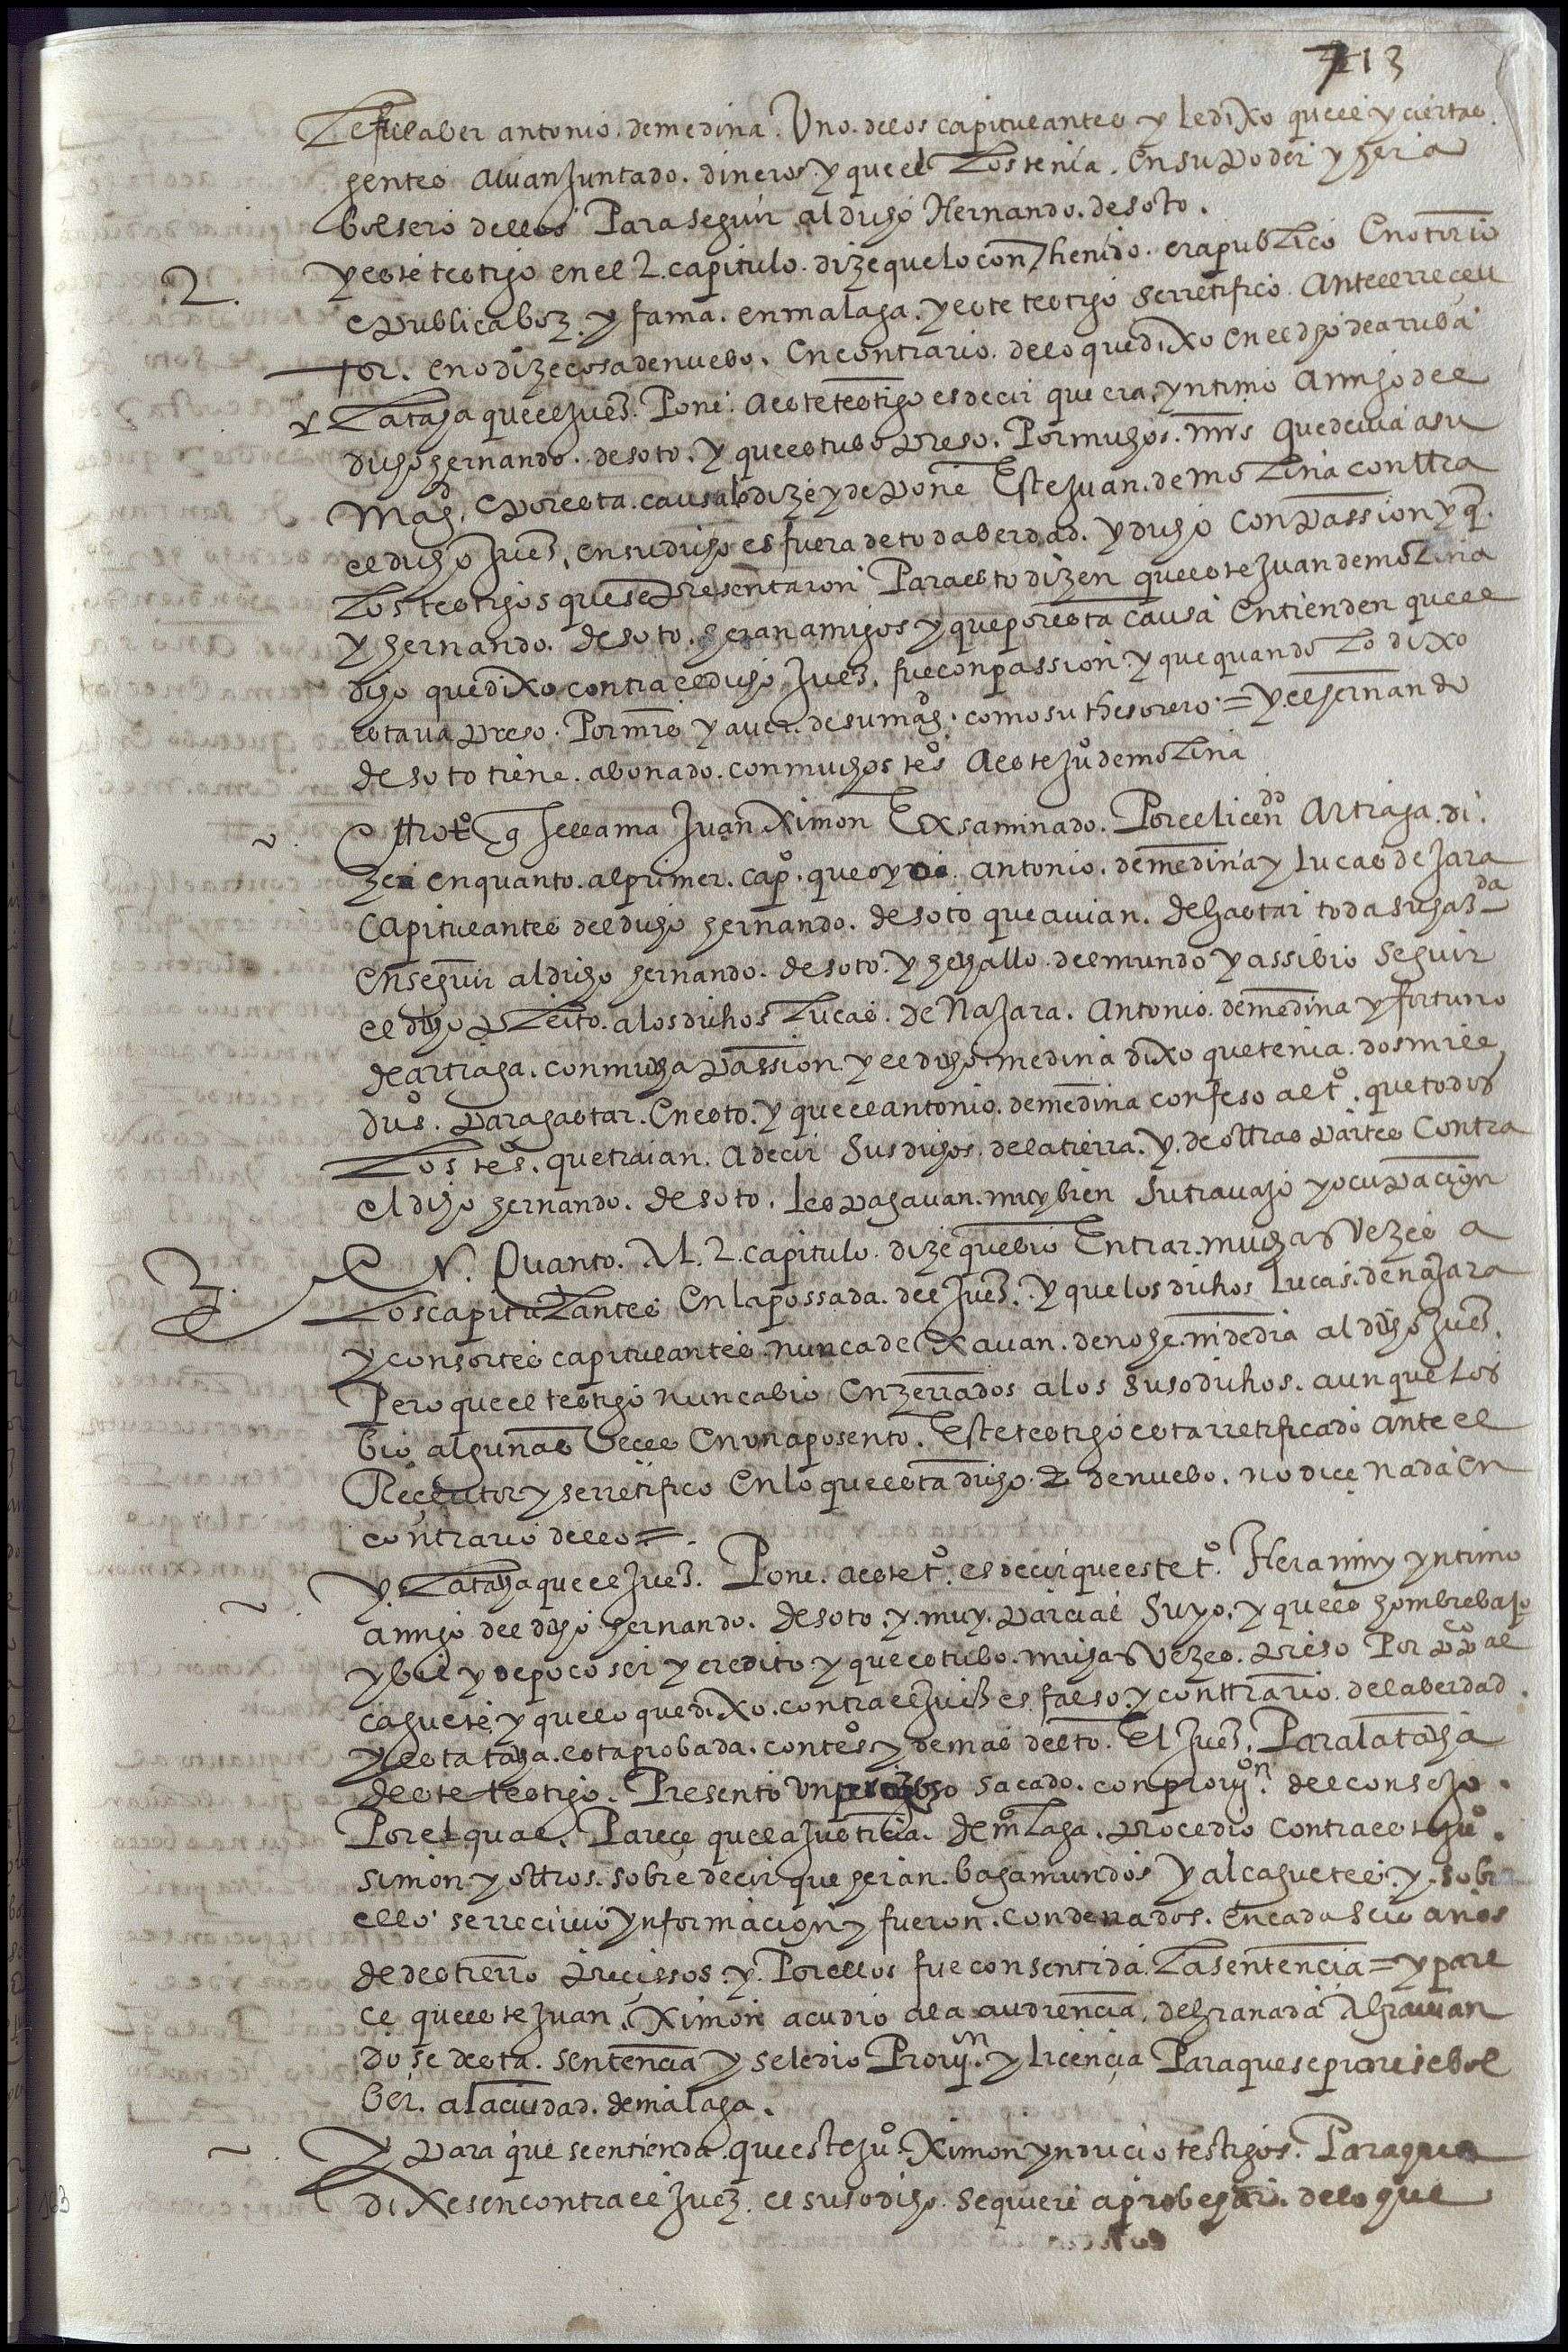 713
Le fue a ber antonio. de medina. Uno. de los capitulantes y le dixo que el y ciertas.
gentes avian Juntado. dineros. y que el Los tenia. En su poder y hera
bolsero dellos Para seguir al dicho Hernando. de soto.
2. y este testigo en el 2. capitulo. dize que lo conthenido. era publico E notorio
e publica boz. y fama. en malaga. y este testigo se rretifico Ante el rreçeu
tor. e no dize cosa de nuebo. En contrario. de lo que dixo en el dho de arriba
y La tacha que el Juez. Pone. a este testigo es decir que era. yntimo Amigo del
dicho hernando. de soto. y que estubo preso. Por muchos. mrs que devia a su
Magd. E por esta. causa lo dize y depone Este Juan. de molina conttra
el dicho Juez, en su dicho es fuera de toda berdad. y dicho con passion y q.
Los testigos que se presentaron Para esto dizen que este Juan de molina
y hernando. de soto. heran amigos y que por esta causa Entienden que el
dicho que dixo contra el dicho Juez, fue con passion. y que quando Lo dixo
estava preso. Por mrs y aver. de su magd. como su thesorero. = y el hernando
de soto tiene. abonado. con muchos tes A este Juo de molina
Ottro to q se llama Juan Ximon Exsaminado. Por el licendo Artiaga. di.
ze en quanto. al primer. capo. que oyo a antonio. de medina y Lucas de Jara
capitulantes del dicho hernando. de soto que avian. de gastar toda su hazda
En seguir al dicho hernando. de soto. y se hallo del mundo y assi bio seguir
el dicho pleito. a los dichos Lucas. de Najara. Antonio. de medina y fortuno
de artiaga. con mucha passion y el dicho. medina dixo que tenia. dos mill
dus. para gastar. En esto. y que el antonio. de medina confeso al to. que todos
Los tes. que traian. A decir sus dichos. de la tierra. y. de ottras partes Contra
el dicho hernando. de soto. les pagavan. muy bien su travajo y ocupacion
3. EN. Quanto. Al. 2. capitulo. dize que bio Entrar. muchas Vezes a
Los capitulantes En la possada. del Juez. y que los dichos Lucas. de najara
y consortes capitulantes. nunca dexavan. de noche. ni de dia al dicho Juez.
Pero que el testigo nunca bio Enzerrados a los susodichos. aunque Los
bio algunas beces En un aposento. Este testigo esta rretificado ante el
Reçeutor y se rretifico En lo que esta dicho. E de nuebo. no dice nada En
contrario dello =.
y. La tacha que el Juez. Pone. a este to. es decir que este to. Hera muy yntimo
amigo del dicho hernando. de soto. y. muy. parcial suyo. y que es hombre bajo
y bil y de poco ser y credito y que estubo. muchas Vezes. preso Por ppco al
caguete. y que lo que dixo. contra el Juez es falso. y conttrario. de la berdad.
y esta tacha. esta probada. con tes y demas desto. El Juez. Para la tacha
deste testigo. Presento un proceso sacado. con proyon. del consejo.
Por el qual. Pareçe que la Justicia. de mlaga. procedio contra este Juo.
simon y ottros. sobre decir que heran. bagamundos y alcaguetes. y. sobr
ello se rrecivio ynformacion y fueron. condenados. En cada seis años
de destierro precissos. y. Por ellos fue consentida. La sentencia = y pare
ce que este Juan. Ximon acudio a la audiencia. de granada Agravian
dose desta. sentencia y se le dio Proyon. y licencia Para que se bol
ber. a la ciudad. de malaga.
y para que se entienda. que este Juo. Ximon ynducio testigos. Para que
dixesen contra el Juez. el susodicho. se quiere aprobechar. de lo que